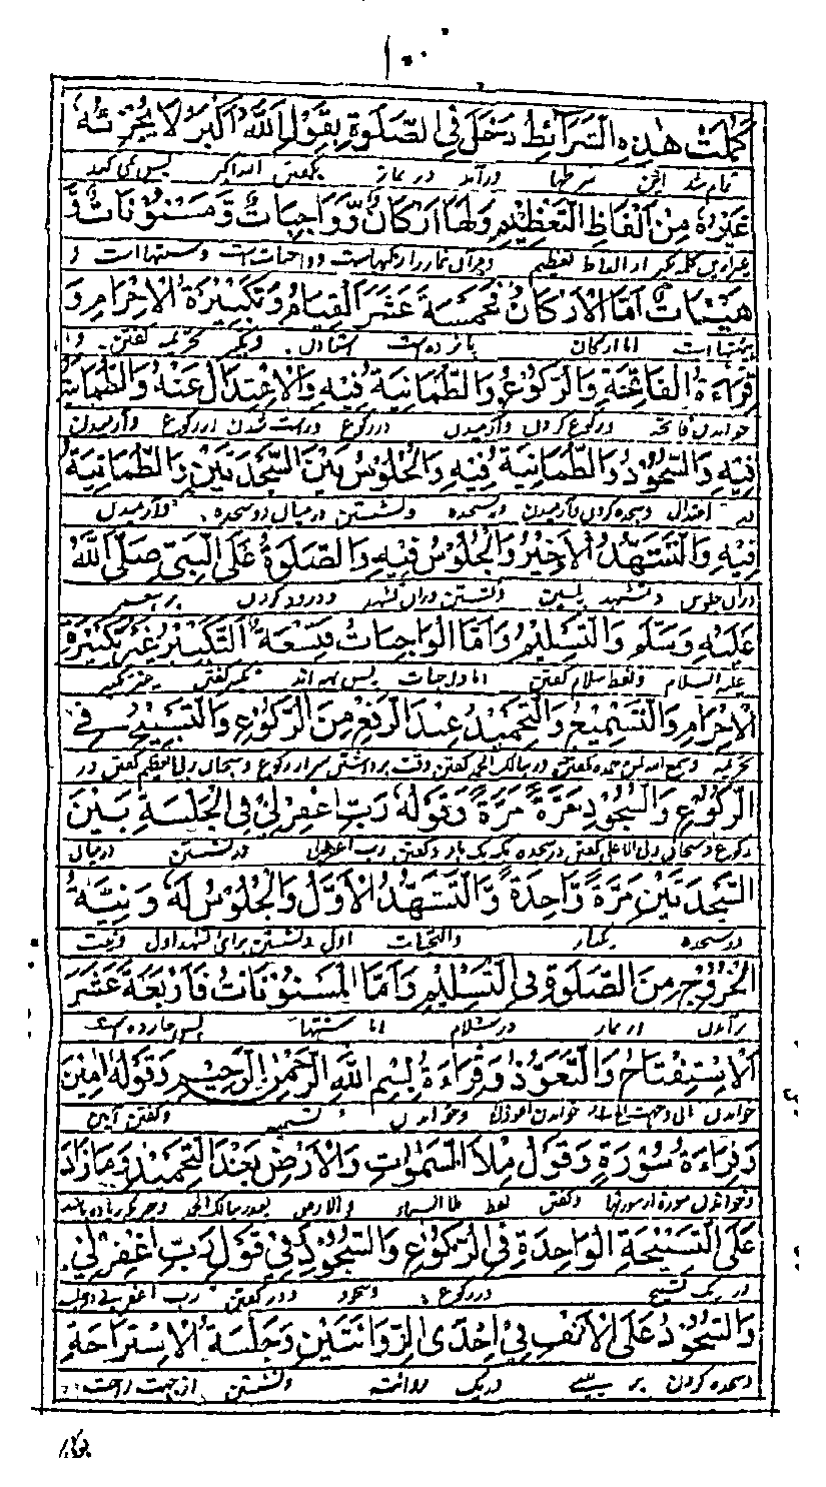 ١٠٠
كملت هذه الشرائط دخل في الصلوة بقول الله اكبر لا يجزئه
تمام شد این شرطها درآید در نماز بگفتن الله اکبر پس نمی کند
غيره من الفاظ التعظيم ولها اركان وواجبات ومسنونات و
غیر این کلمه دیگر از الفاظ تعظیم و و واجبات است و سنتها است و
هيئات اما الاركان فخمسة عشر القيام وتكبيرة الاحرام و
است اما ارکان پانزده است استادن و تکبیر تحریمه گفتن و
قراءة الفاتحة والركوع والطمانية فيه والاعتدال عنه والطمانية
خواندن فاتحه و رکوع کردن و آرمیدن در رکوع و راست شدن از رکوع و آرمیدن
فيه والسجود والطمانية فيه والجلوس بين السجدتين والطمانية
در اعتدال و سجده کردن و آرمیدن در سجده و نشستن در میان دو سجده و آرمیدن
فيه والتشهد الاخير والجلوس فيه والصلوة على النبي صلى الله
دران جلوس و تشهد پسین و نشستن دران تشهد و درود کردن بر پیغمبر
عليه وسلم والتسليم واما الواجبات فتسعة التكبير غير تكبيرة
علیه السلام و لفظ سلام گفتن اما واجبات پس نهم اند تکبیر گفتن جز تکبیر
الاحرام والتسميع والتحميد عند الرفع من الركوع والتسبيح في
تحریمه و سمع الله لمن حمده گفتن و ربنا لک الحمد گفتن وقت برداشتن سر از رکوع و سبحان ربی العظیم گفتن در
الركوع والسجود مرة مرة وقوله رب اغفر لي في الجلسة بين
رکوع و سبحان ربی الاعلی گفتن در سجده یک یک بار و گفتن رب اغفر لی در نشستن در میان
السجدتين مرة واحدة والتشهد الاول والجلوس له ونية
دو سجده یکبار والتحیات اول و نشستن برای تشهد اول و نیت
الخروج من الصلوة في التسليم واما المسنونات فاربعة عشر
برآمدن از نماز در سلام اما سنتها پس چهارده است
الاستفتاح والتعوذ وقراءة بسم الله الرحمن الرحيم وقوله امين
خواندن خواندن اعوذ و خواندن تسمیه و گفتن آمین
وقراءة سورة وقول ملأ السموات والارض بعد التحميد وما زاد
و خواندن سوره از سورتها و گفتن لفظ ملأ السماء والارض بعد ربنا لک الحمد و هر چه زیاده باشد
على التسبيحة الواحدة في الركوع والسجود في قول رب اغفر لي
بر یک تسبیح در رکوع و سجود و در گفتن رب اغفر لی
والسجود على الانف في احدى الروايتين وجلسة الاستراحة
و سجده کردن بر بینی در یک روایت و نشستن از جهت راحت